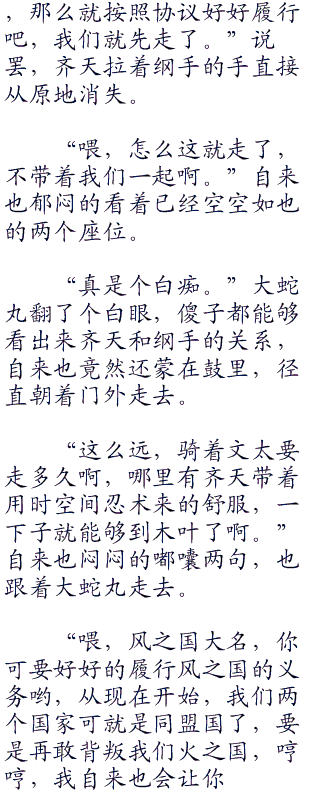 ，那么就按照协议好好履行
吧，我们就先走了。”说
罢，齐天拉着纲手的手直接
从原地消失。
“喂，怎么这就走了，
不带着我们一起啊。”自来
也郁闷的看着已经空空如也
的两个座位。
“真是个白痴。”大蛇
丸翻了个白眼，傻子都能够
看出来齐天和纲手的关系，
自来也竟然还蒙在鼓里，径
直朝着门外走去。
“这么远，骑着文太要
走多久啊，哪里有齐天带着
用时空间忍术来的舒服，一
下子就能够到木叶了啊。”
自来也闷闷的嘟囔两句，也
跟着大蛇丸走去。
“喂，风之国大名，你
可要好好的履行风之国的义
务哟，从现在开始，我们两
个国家可就是同盟国了，要
是再敢背叛我们火之国，哼
哼，我自来也会让你